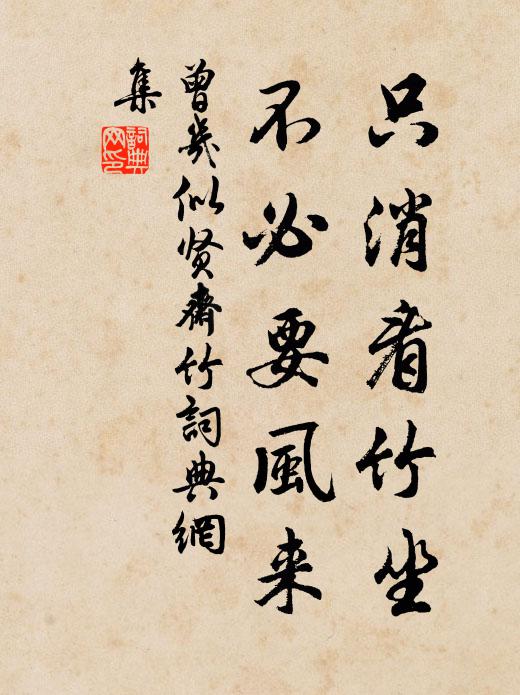 只消看竹坐
不必要風来
曾幾似贤齋竹詞典網
集
詞典网印